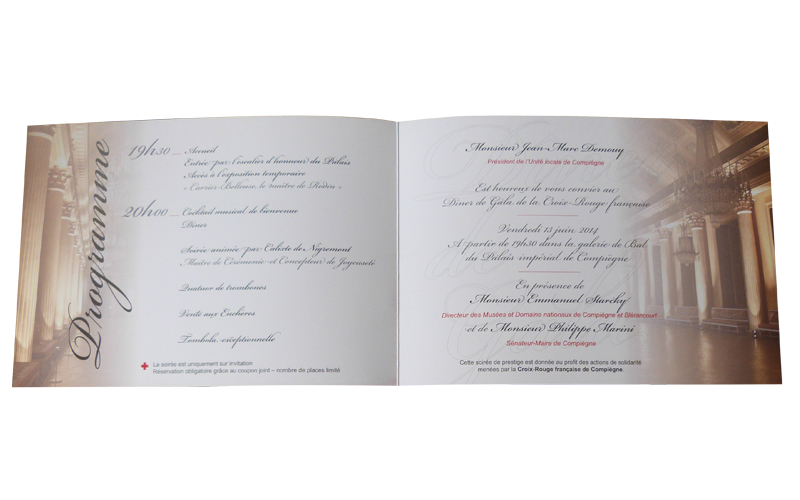 Programme
19h30 — Accueil
Entrée par l'escalier d'honneur du Palais
Accès à l'exposition temporaire
« Carrier-Belleuse, le maître de Rodin »
20h00 — Cocktail musical de bienvenue
Dîner
Soirée animée par Calixte de Nigremont
Maître de Cérémonie et Concepteur de Joyeuseté
Quatuor de trombones
Vente aux Enchères
Tombola exceptionnelle
La soirée est uniquement sur invitation
Réservation obligatoire grâce au coupon joint – nombre de places limité
Monsieur Jean-Marc Demouy
Président de l'Unité locale de Compiègne
Est heureux de vous convier au
Dîner de Gala de la Croix-Rouge française
Vendredi 13 juin 2014
A partir de 19h30 dans la galerie de Bal
du Palais impérial de Compiègne
En présence de
Monsieur Emmanuel Starcky
Directeur des Musées et Domaines nationaux de Compiègne et Blérancourt
et de Monsieur Philippe Marini
Sénateur-Maire de Compiègne
Cette soirée de prestige est donnée au profit des actions de solidarité
menées par la Croix-Rouge française de Compiègne.